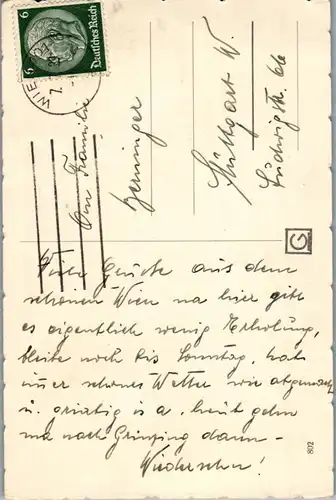 6 6
Deutsches Reich
WIE
An Familie
Benninger
Stuttgart W.
Ludwigstr. 66
G
Viele Grüße aus dem
schönen Wien na hier gibt
es eigentlich wenig Erholung,
bleibe noch bis Sonntag, hab
immer schönes Wetter wie abgemacht
u. grüabig is a, heut gehn
ma nach Grinzing dann –
Wiedersehn!
802